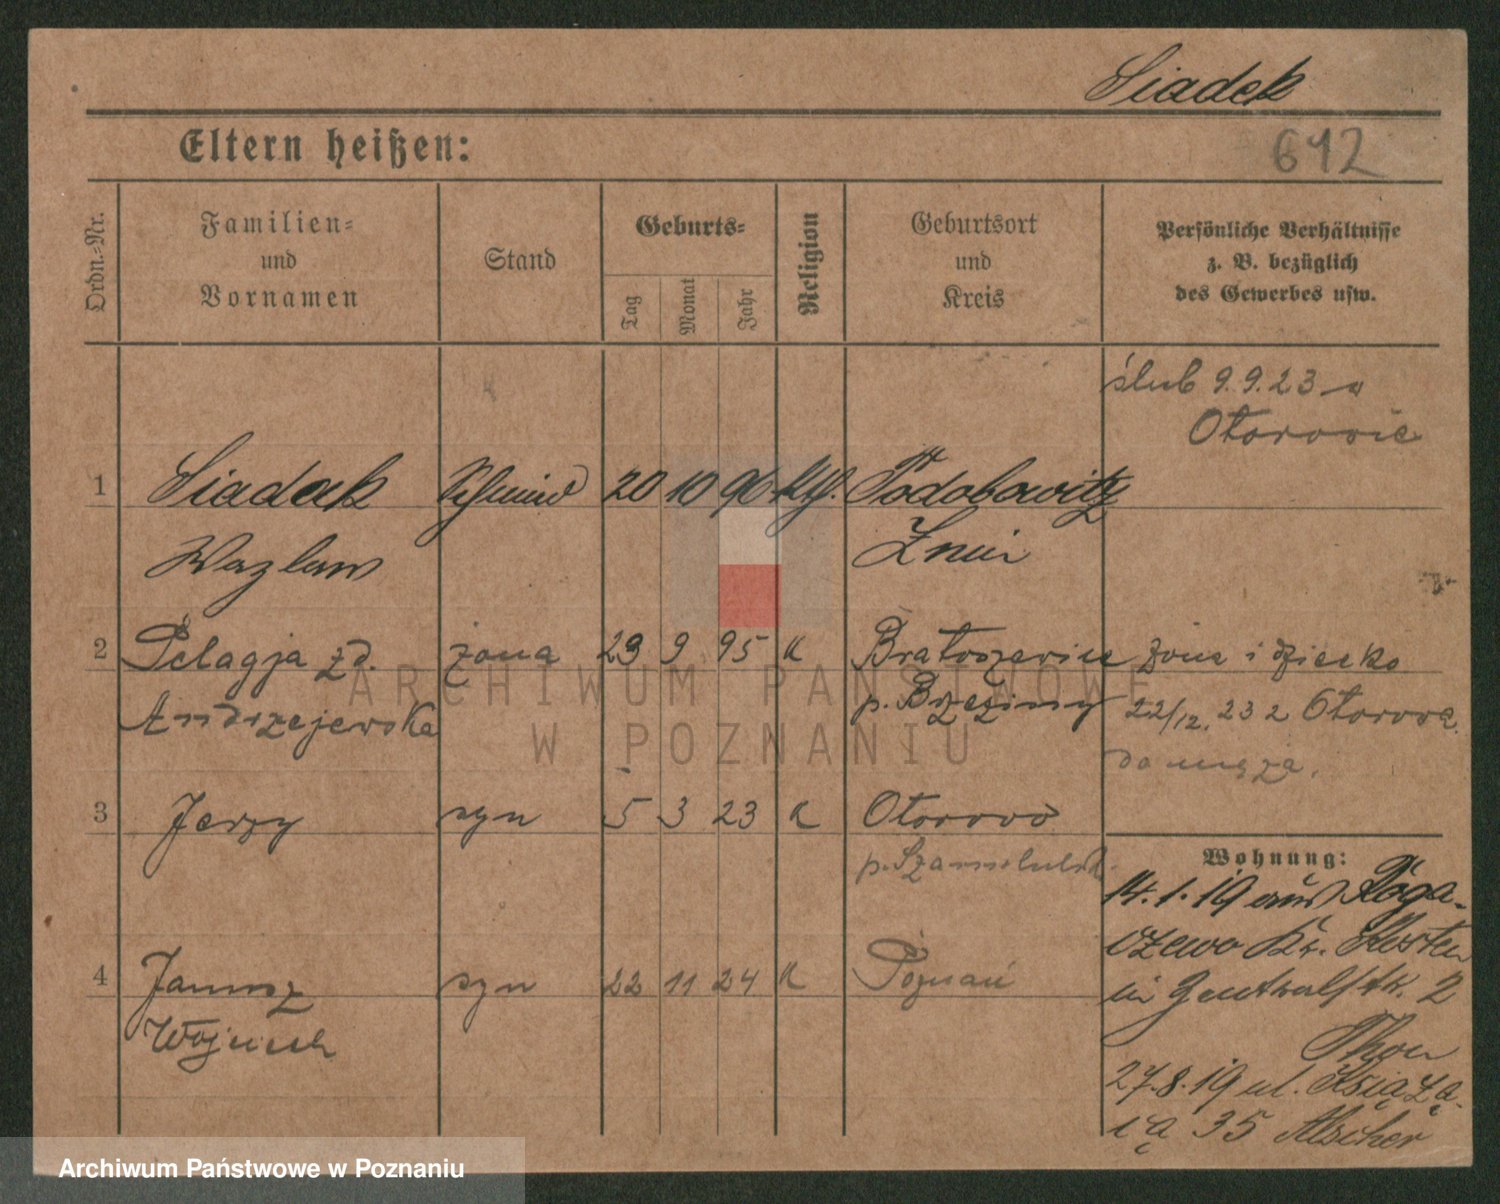 Siadek
Eltern heißen:
642
Ordn.-Nr.
Familien-
und
Vornamen
Stand
Geburts-
Tag
Monat
Jahr
Religion
Geburtsort
und
Kreis
Persönliche Verhältnisse
z. B. bezüglich
des Gewerbes usw.
ślub 9.9.23 w
Otorowie
1 Siadek Schmied 20 10 96 kth. Podobowitz
Wazlaw Żnin
2 Pelagja zd. żona 29 9 95 k Bratoszewice
Andrzejewska p. Brzeziny
żona i dziecko
22/12. 23 z Otorowa
do męża.
3 Jerzy syn 5 3 23 k Otorowo
p. Szamotulsk.
4 Janusz syn 22 11 24 k Poznań
Wojciech
Wohnung:
14.1.19 aus Roga-
czewo Kr. Kosten
in Zentralstr. 2
Thon
27.8.19 ul. Książę-
cą 35 Alscher
ARCHIWUM PAŃSTWOWE
W POZNANIU
Archiwum Państwowe w Poznaniu